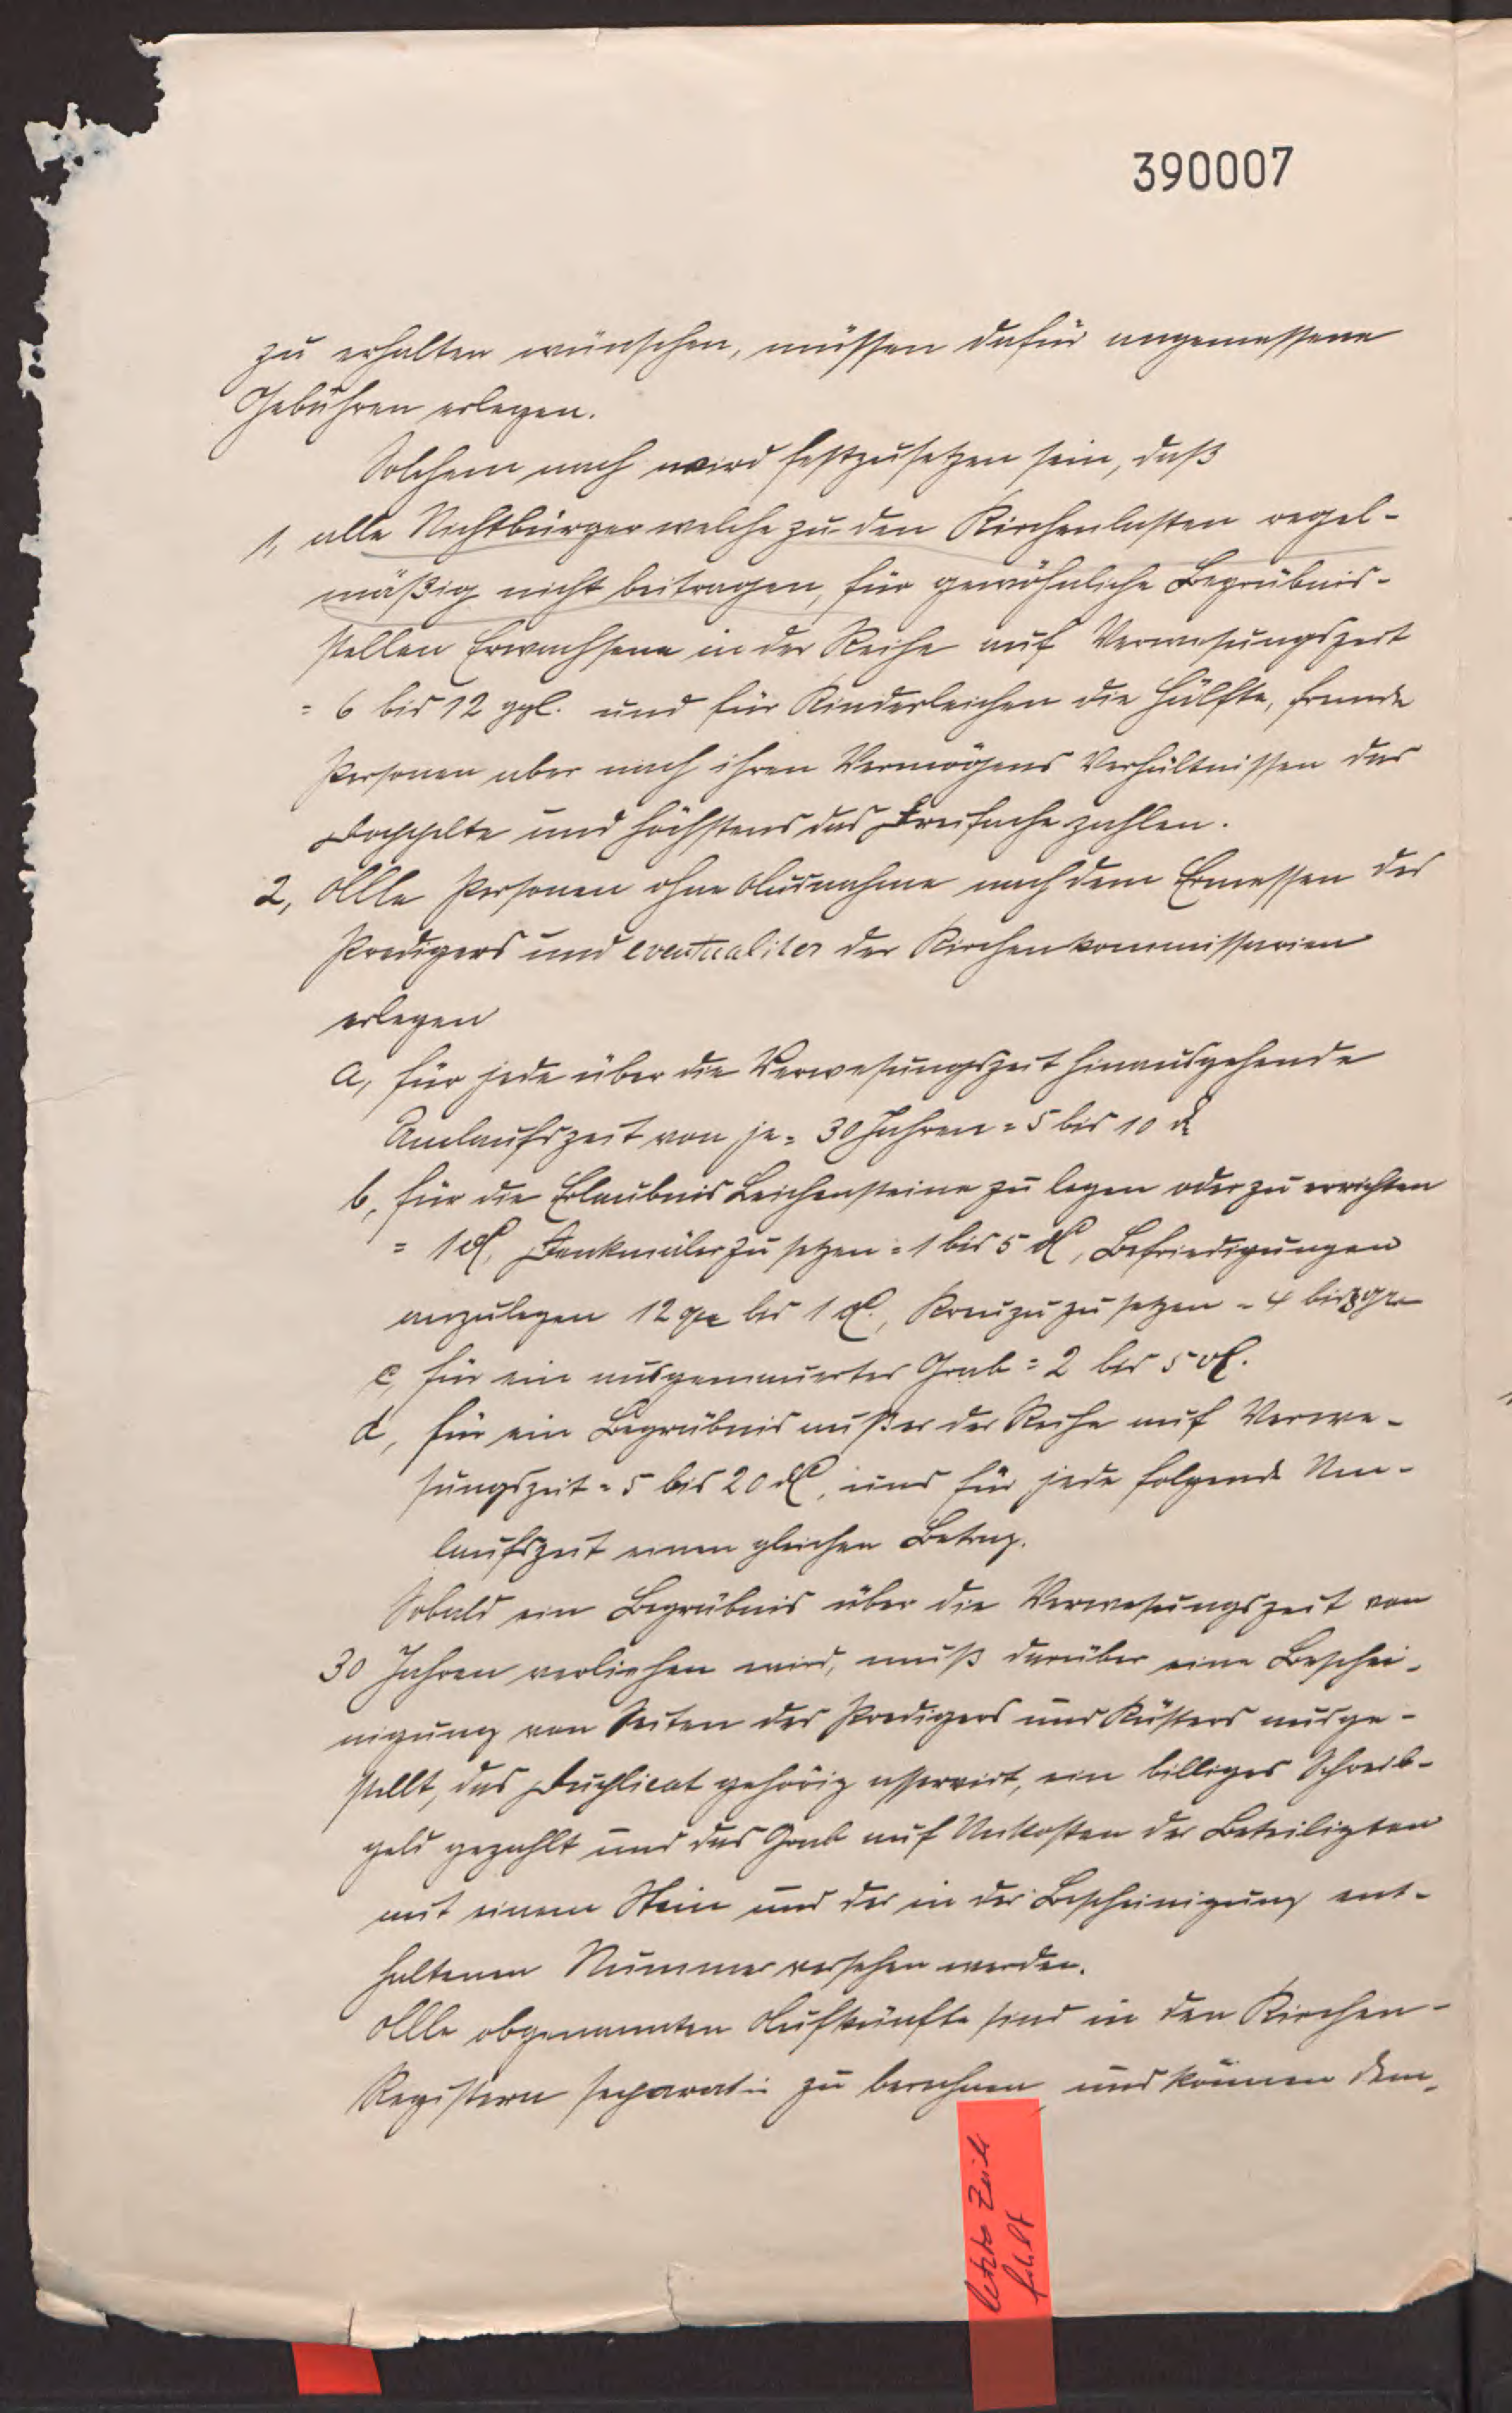 390007
zu erhalten wünschen, müssen dafür angemessene
Gebühren erlegen.
Solchem nach wird festzusetzen sein, daß
1, alle Nichtbürger welche zu den Kirchenlasten regel-
mäßig nicht beitragen, für gewöhnliche Begräbnis-
stellen Erwachsene in der Reihe auf Verwesungszeit
= 6 bis 12 ggl. und für Kinderleichen die Hälfte, fremde
Personen aber nach ihren Vermögens Verhältnissen das
Doppelte und höchstens das Dreifache zahlen.
2, Alle Personen ohne Ausnahme nach dem Ermessen des
Predigers und eventualiter der Kirchenkommissarien
erlegen
a, für jede über die Verwesungszeit hinausgehende
Umlaufszeit von je = 30 Jahren = 5 bis 10
b, für die Erlaubnis Leichensteine zu legen oder zu errichten
= 1 Denkmäler zu setzen = 1 bis 5 , Befriedigungen
anzulegen 12 bis 1 , Kreuze zu setzen = 4 bis
c, für ein ausgemauertes Grab = 2 bis 5
d, für ein Begräbnis außer der Reihe auf Verwe-
sungszeit = 5 bis 20 , und für jede folgende Um-
laufszeit einen gleichen Betrag.
Sobald ein Begräbnis über die Verwesungszeit von
30 Jahren verliehen wird, muß darüber eine Beschei-
nigung von Seiten des Predigers und Küsters ausge-
stellt, das Duplicat gehörig asservirt, ein billiges Schreib-
geld gezahlt und das Grab auf Unkosten der Beteiligten
mit einem Stein und der in der Bescheinigung ent-
haltenen Nummer versehen werden.
Alle obgenannten Aufkünfte sind in den Kirchen-
Registern separatim zu berechnen und können dem-
letzte Zeile
fehlt